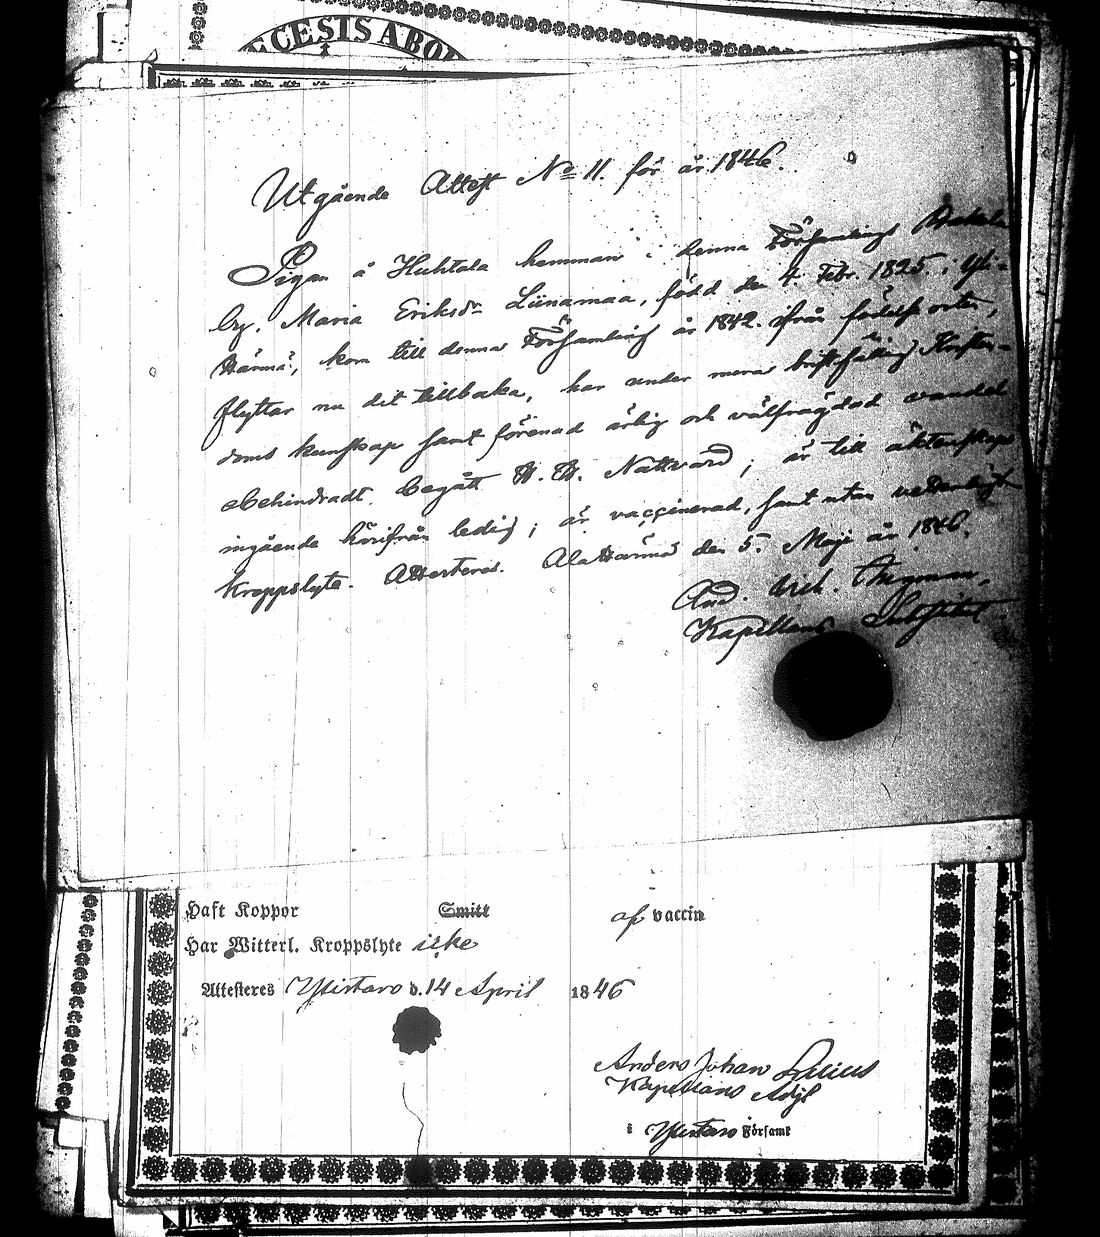 ECESIS ABO
Utgående Attest No 11. för år 1846.
Pigan å Huhtala hemman i denna Församlings
by, Maria Eriksdr Liinamaa, född den 4. Febr. 1825. i Yli-
Härmä, kom till denna Församling år 1842. ifrån födelse orten,
flyttar nu dit tillbaka, har under mera Kristen-
doms kunskap samt förenad ärlig och välfrägdad vandel
obehindradt begått H. H. Nattvard; är till äktenskaps
ingående härifrån ledig; är vaccinerad, samt utan vederligt
kroppslyte. Attesteras. Ala Härmä den 5. Maji år 1846.
And.
Kapellans Substitut
Haft Koppor Smitt af vaccin
Har Witterl. Kroppslyte icke
Attesteres Ylistaro d. 14 April 1846
Anders Johan
Kapellans Adj
i Ylistaro Församl